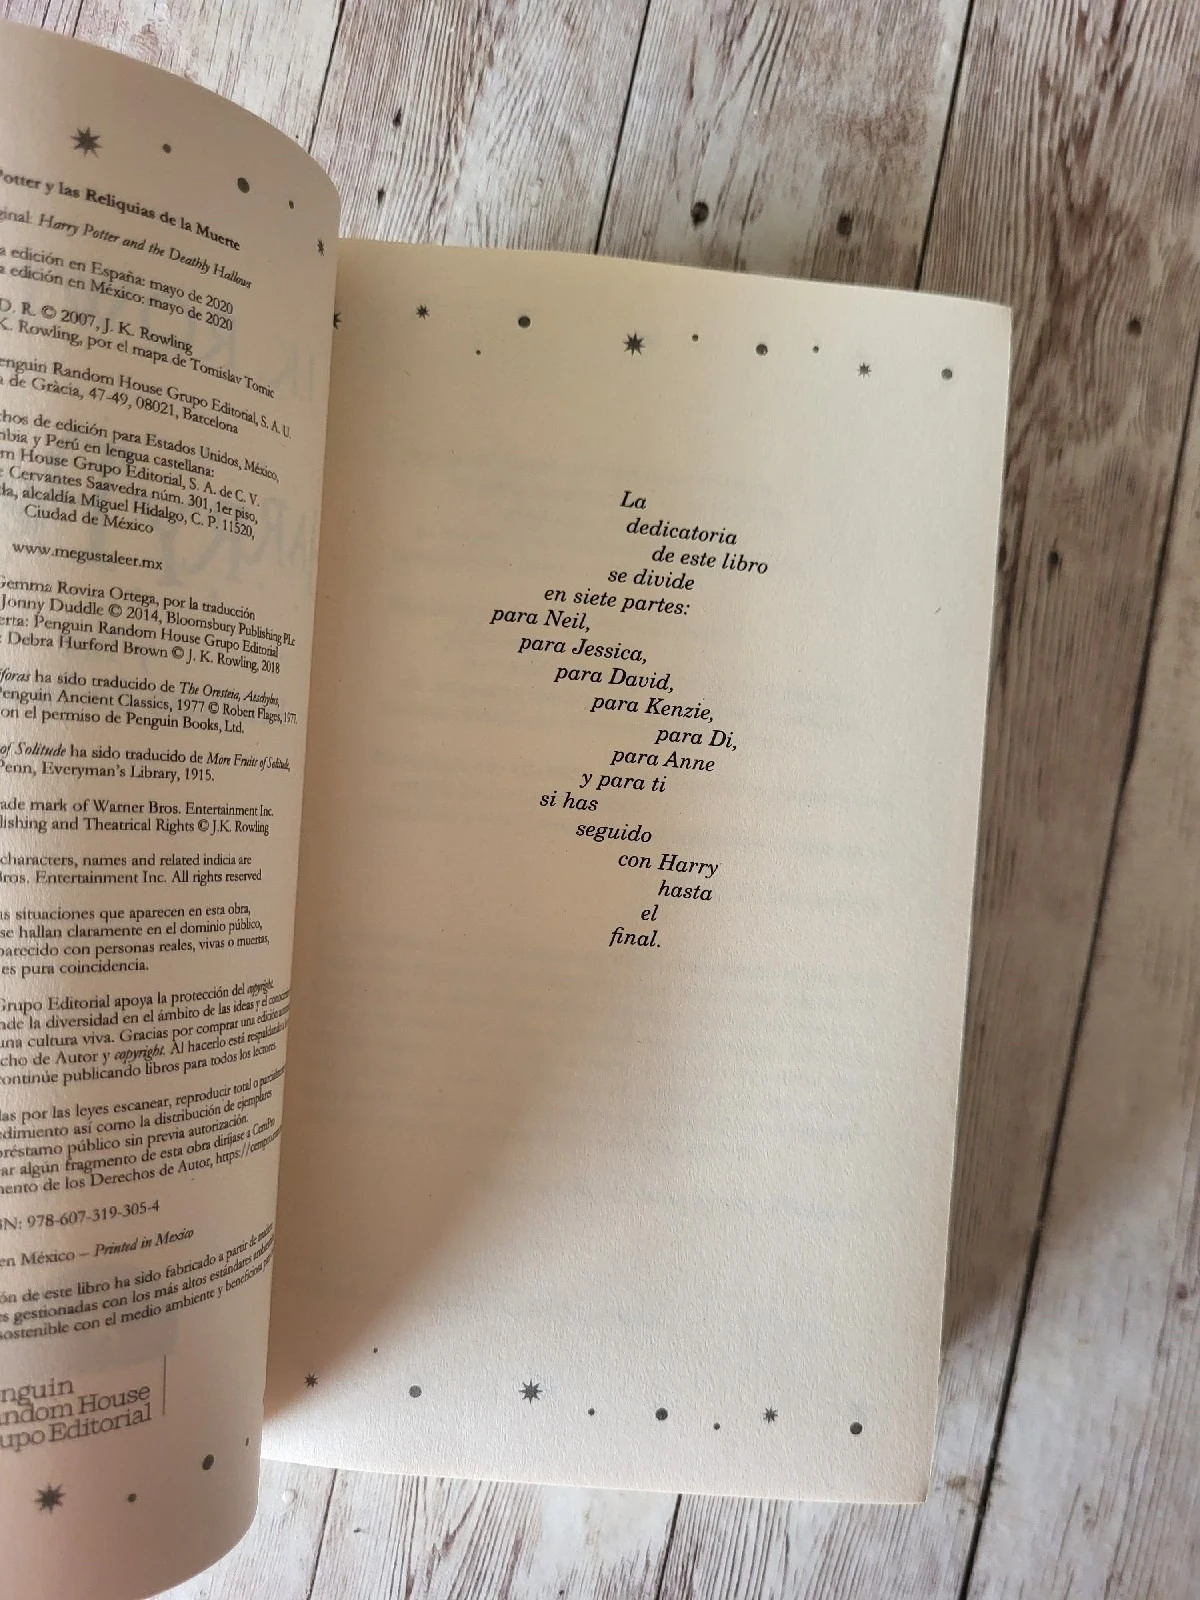 Potter y las Reliquias de la Muerte
Harry Potter and the Deathly Hallows
edición en España: mayo de 2020
edición en México: mayo de 2020
D. R. © 2007, J. K. Rowling
K. Rowling, por el mapa de Tomislav Tomic
Penguin Random House Grupo Editorial, S. A. U.
de Gràcia, 47-49, 08021, Barcelona
de edición para Estados Unidos, México,
y Perú en lengua castellana:
House Grupo Editorial, S. A. de C. V.
Cervantes Saavedra núm. 301, 1er piso,
alcaldía Miguel Hidalgo, C. P. 11520,
Ciudad de México
www.megustaleer.mx
Gemma Rovira Ortega, por la traducción
Jonny Duddle © 2014, Bloomsbury Publishing PLc
Penguin Random House Grupo Editorial
Debra Hurford Brown © J. K. Rowling, 2018
ha sido traducido de The Oresteia, Aeschylus,
Penguin Ancient Classics, 1977 © Robert Flages, 1977,
con el permiso de Penguin Books, Ltd.
of Solitude ha sido traducido de More Fruits of Solitude,
Penn, Everyman's Library, 1915.
mark of Warner Bros. Entertainment Inc.
and Theatrical Rights © J.K. Rowling
characters, names and related indicia are
Bros. Entertainment Inc. All rights reserved
situaciones que aparecen en esta obra,
se hallan claramente en el dominio público,
con personas reales, vivas o muertas,
es pura coincidencia.
Grupo Editorial apoya la protección del copyright.
la diversidad en el ámbito de las ideas y el
una cultura viva. Gracias por comprar una edición
de Autor y copyright. Al hacerlo está respaldando a
continúe publicando libros para todos los lectores.
por las leyes escanear, reproducir total o
así como la distribución de ejemplares
préstamo público sin previa autorización.
algún fragmento de esta obra diríjase a CemPro
de los Derechos de Autor,
978-607-319-305-4
en México – Printed in Mexico
de este libro ha sido fabricado a partir de
gestionadas con los más altos estándares
sostenible con el medio ambiente y beneficiosa
Penguin
Random House
Grupo Editorial
La
dedicatoria
de este libro
se divide
en siete partes:
para Neil,
para Jessica,
para David,
para Kenzie,
para Di,
para Anne
y para ti
si has
seguido
con Harry
hasta
el
final.